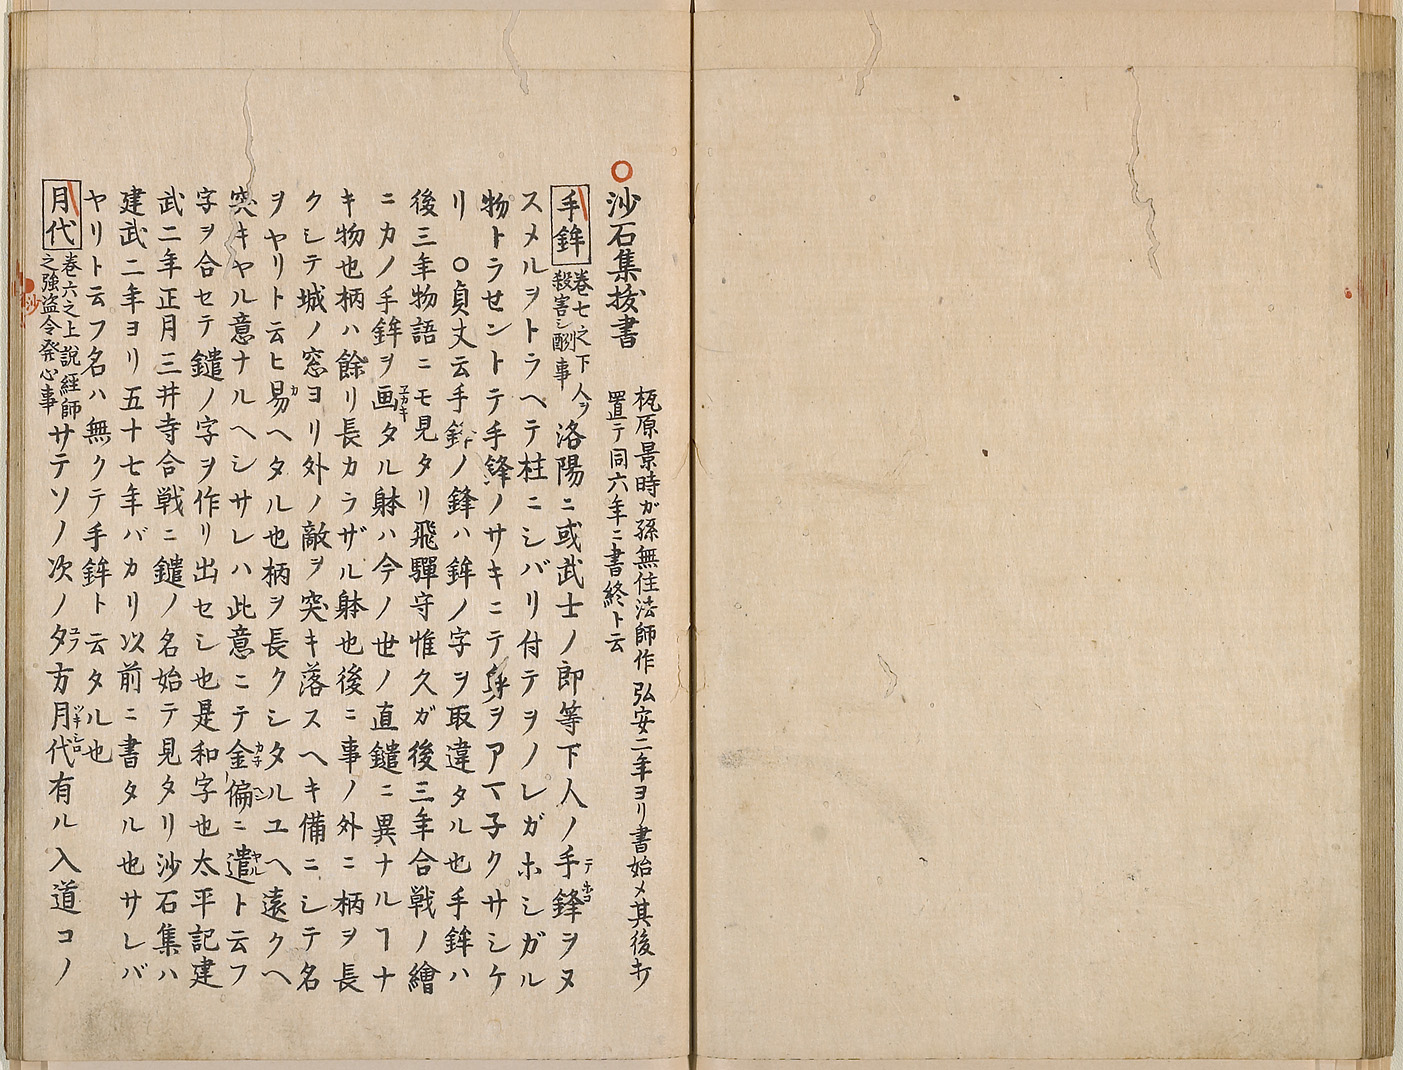 ○沙石集抜書
梶原景時ガ孫無住法師作 弘安二年ヨリ書始メ其後打
置テ同六年ニ書終ト云
手鉾
巻七之下人ヲ
殺害シ酬事
洛陽ニ或武士ノ郎等下人ノ手鋒ヲヌ
テホコ
スメルヲトラヘテ柱ニシバリ付テヲノレガホシガル
物トラセントテ手鋒ノサキニテ身ヲアマ子クサシケ
リ ○貞丈云手鋒ノ鋒ハ鉾ノ字ヲ取違タル也手鉾ハ
後三年物語ニモ見タリ飛騨守惟久ガ後三年合戦ノ繪
ニカノ手鉾ヲ画タル躰ハ今ノ世ノ直鑓ニ異ナルヿナ
ヱガキ
キ物也柄ハ餘リ長カラザル躰也後ニ事ノ外ニ柄ヲ長
クシテ城ノ窓ヨリ外ノ敵ヲ突キ落スヘキ備ニシテ名
ヲヤリト云ヒ易ヘタル也柄ヲ長クシタルユヘ遠クヘ
カ
突キヤル意ナルヘシサレハ此意ニテ金偏ニ遣ト云フ
カネ ヘン ヤル
字ヲ合セテ鑓ノ字ヲ作リ出セシ也是和字也太平記建
武二年正月三井寺合戦ニ鑓ノ名始テ見タリ沙石集ハ
建武二年ヨリ五十七年バカリ以前ニ書タル也サレバ
ヤリト云フ名ハ無クテ手鉾ト云タル也
月代
巻六之上説経師
之強盗令発心事
サテソノ次ノ夕方月代有ル入道コノ
ユフ ツキシロ
沙